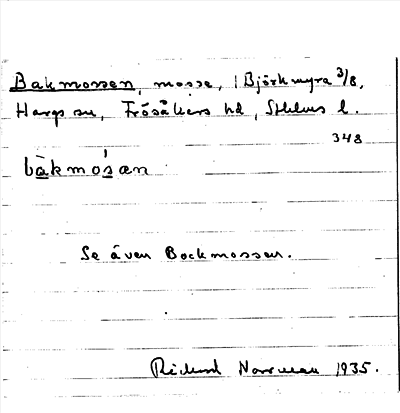 Bakmossen, mosse, | Björkmyra 3/8,
Hargs sn, Frösåkers hd, Sthlms l.
348
bàkmo̱san
Se även Bockmossen.
Rickard Norrman 1935.